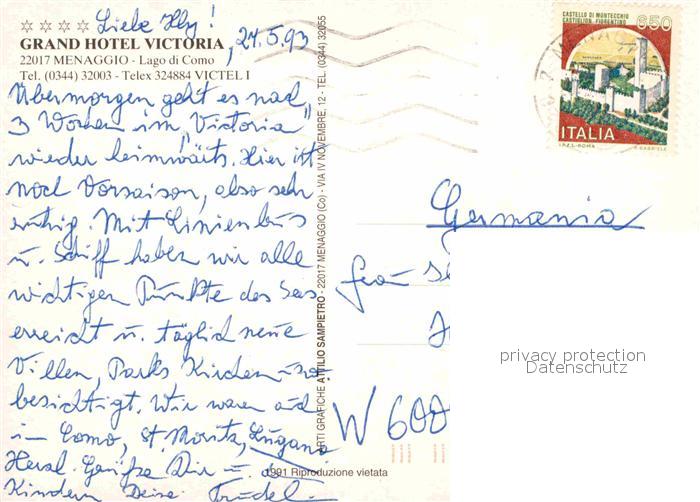 Liebe Illy!
☆ ☆ ☆ ☆
GRAND HOTEL VICTORIA, 27.5.93
22017 MENAGGIO - Lago di Como
Tel. (0344) 32003 - Telex 324884 VICTEL I
Übermorgen geht es nach
3 Wochen im "Victoria"
wieder heimwärts. Hier ist
noch Vorsaison, also sehr
ruhig. Mit Linienbus
u. Schiff haben wir alle
wichtigen Punkte des Sees
erreicht u. täglich neue
Villen, Parks Kirchen
besichtigt. Wir waren auch
in Como, St. Moritz, Lugano
Herzl. Grüße Dir u. d.
Kindern Deine Trudel.
ARTI GRAFICHE ATTILIO SAMPIETRO - 22017 MENAGGIO (Co) - VIA IV NOVEMBRE, 12 - TEL. (0344) 32055
1991 Riproduzione vietata
CASTELLO DI MONTECCHIO
CASTIGLION FIORENTINO
650
ITALIA
I.P.Z.S. - ROMA
Germania
Frau
W 600
privacy protection
Datenschutz